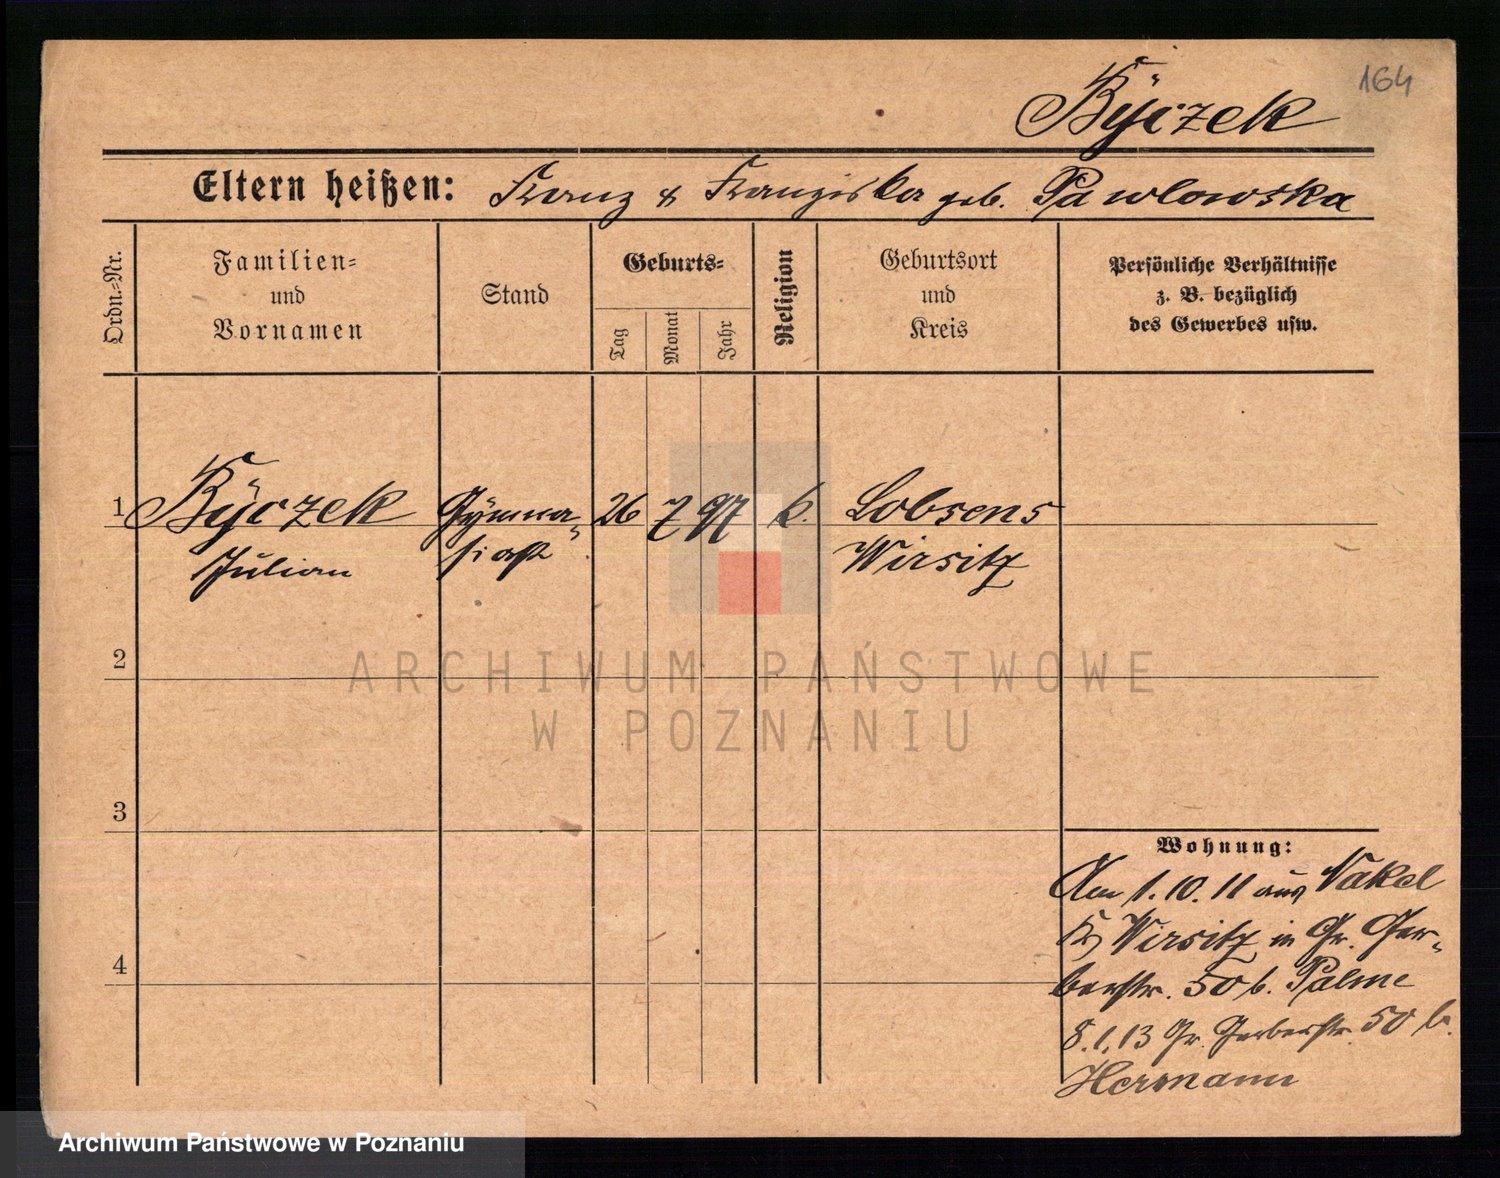 164
Byczek
Eltern heißen: Franz & Franziska geb. Pawlowska
Ordn.-Nr.
Familien-
und
Vornamen
Stand
Geburts-
Tag
Monat
Jahr
Religion
Geburtsort
und
Kreis
Persönliche Verhältnisse
z. B. bezüglich
des Gewerbes usw.
1 Byczek Gymna- 26 7 97 k. Lobsens
Julian siast Wirsitz
2
ARCHIWUM PAŃSTWOWE
W POZNANIU
3
Wohnung:
Am 1.10.11 aus Nakel
Kr Wirsitz in Gr. Ger-
4
berstr. 50 b. Palme
8.1.13 Gr. Gerberstr. 50 b.
Hermann
Archiwum Państwowe w Poznaniu